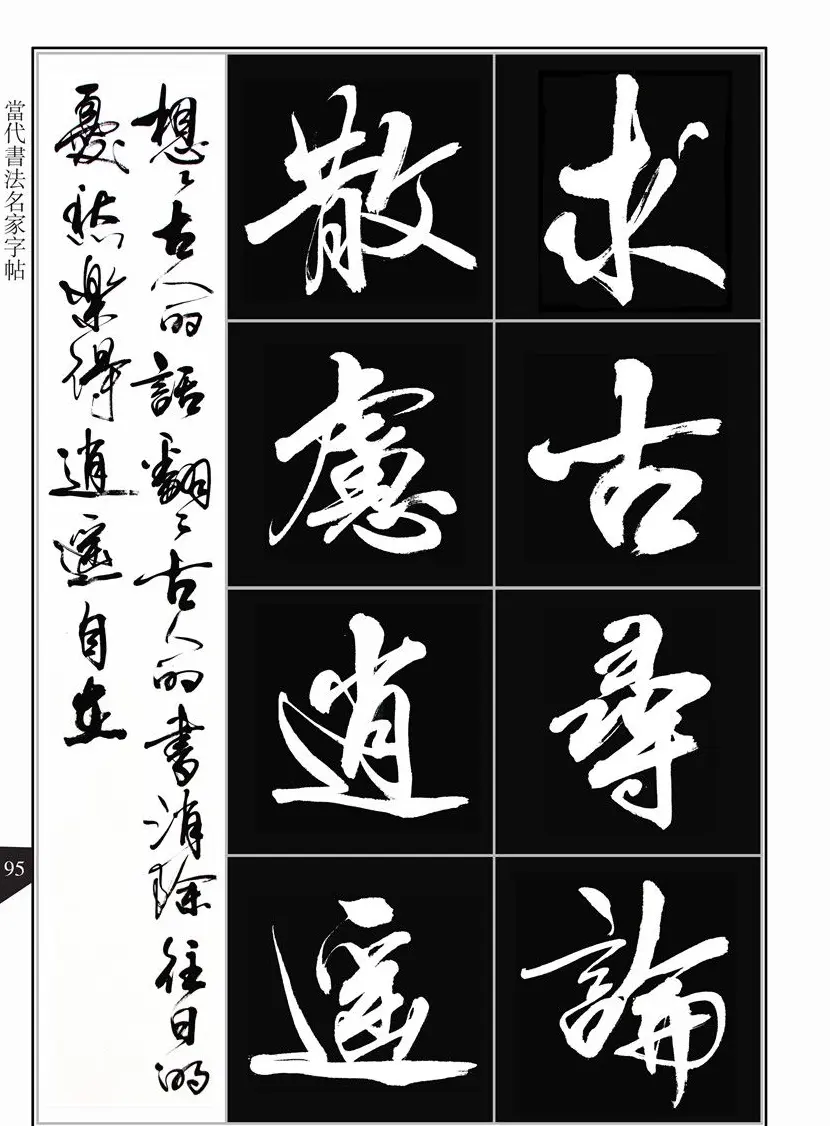 求古尋論
散慮逍遥
想々古人的話翻々古人的書消除往日的
憂愁樂得逍遥自在
當代書法名家字帖
95